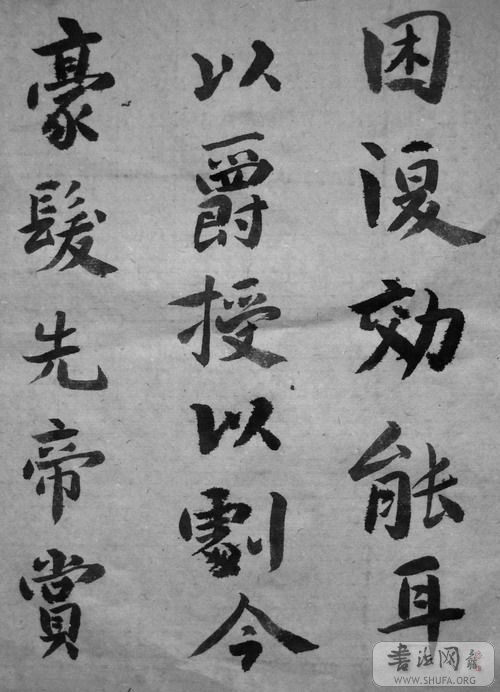 困復効能耳
以爵授以劇今
豪髮先帝賞
书法网
WWW.SHUFA.ORG